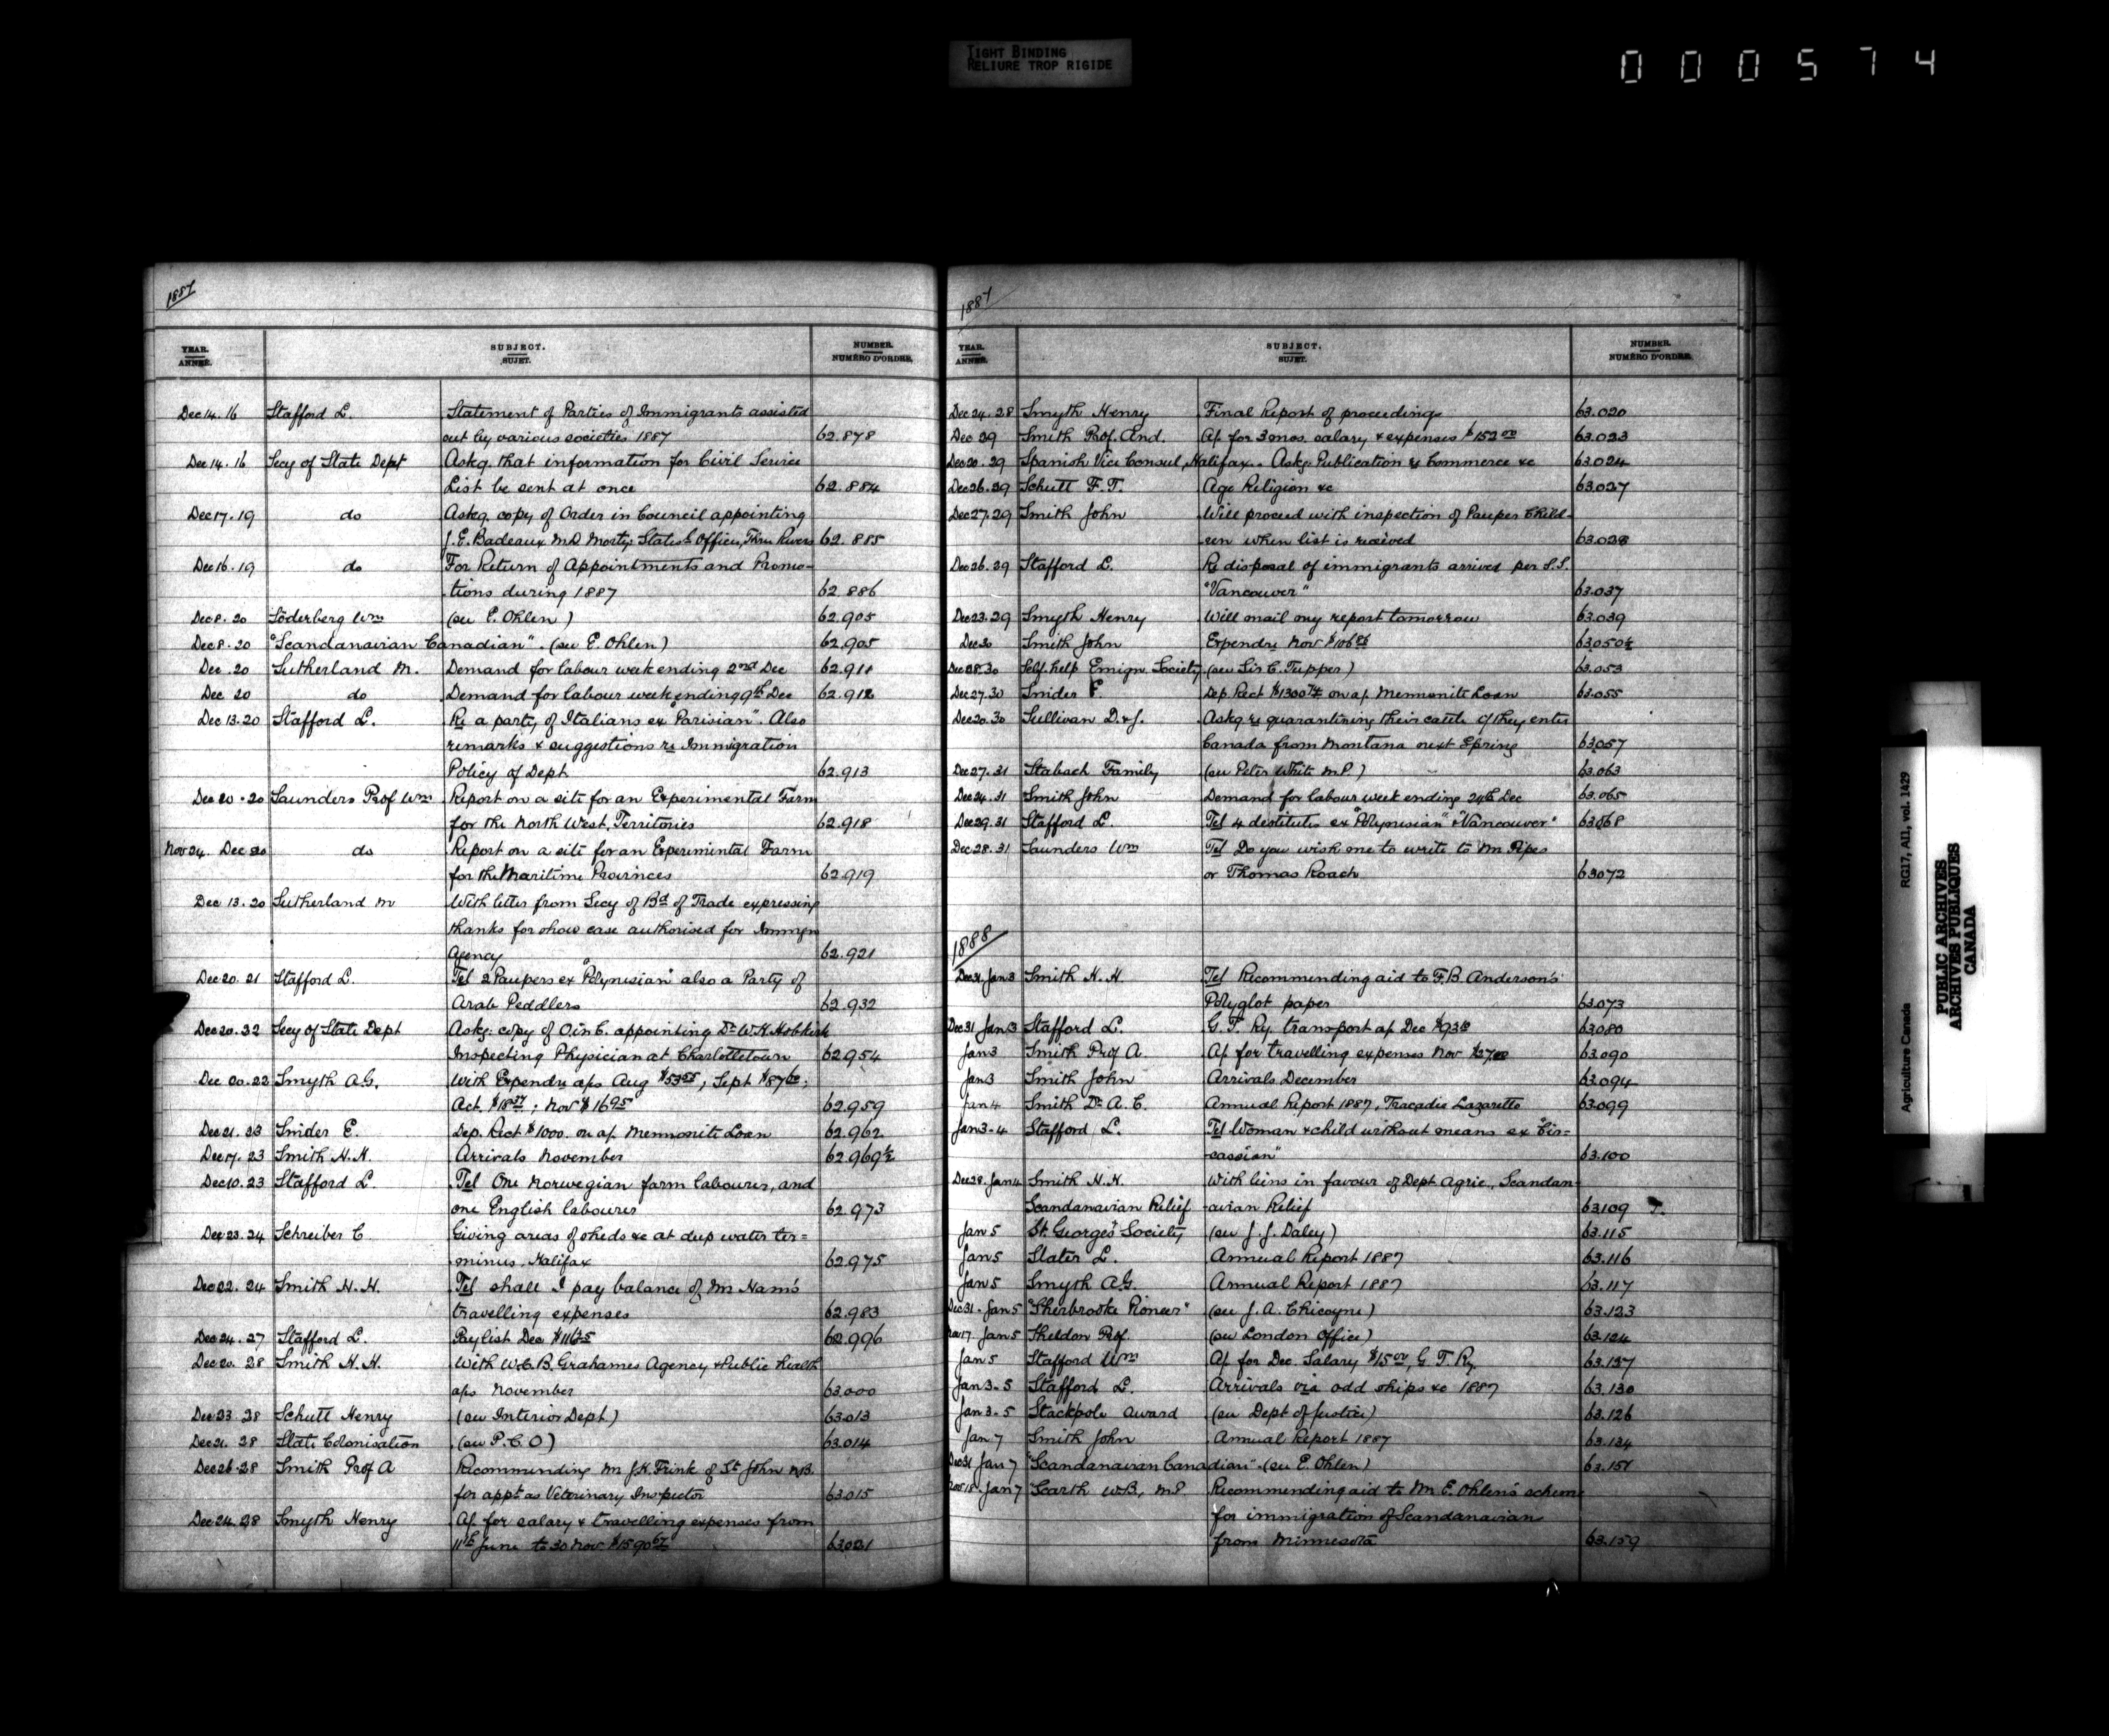 TIGHT BINDING
RELIURE TROP RIGIDE
000574
1887
YEAR. ANNÉE. SUBJECT. SUJET. NUMBER. NUMÉRO D'ORDRE.
Dec 14. 16 Stafford L. Statement of Parties of Immigrants assisted
out by various societies 1887 62.878
Dec 14. 16 Secy of State Dept Askg. that information for Civil Service
List be sent at once 62.884
Dec 17. 19 do Askg. copy of Order in Council appointing
J. E. Badeaux M.D. Morty: Statisl. Officer, Three Rivers 62.885
Dec 16. 19 do For Return of Appointments and Promo-
tions during 1887 62.886
Dec 8. 20 Söderberg Wm (see E. Ohlen) 62.905
Dec 8. 20 "Scandanavian Canadian". (see E. Ohlen) 62.905
Dec. 20 Sutherland M. Demand for labour week ending 2nd Dec 62.911
Dec 20 do Demand for labour week ending 9th Dec 62.912
Dec 13. 20 Stafford L. Re a party of Italians ex "Parisian". Also
remarks & suggestions re Immigration
Policy of Dept 62.913
Dec 20. 20 Saunders Prof Wm Report on a site for an Experimental Farm
for the North West Territories 62.918
Nov 24. Dec 20 do Report on a site for an Experimental Farm
for the Maritime Provinces 62.919
Dec 13. 20 Sutherland M With letter from Secy of Bd of Trade expressing
thanks for show case authorised for Immign
Agency 62.921
Dec 20. 21 Stafford L. Tel 2 Paupers ex "Polynesian" also a Party of
Arab Peddlers 62.932
Dec 20. 22 Secy of State Dept Askg: copy of O in C. appointing Dr W. H. Hobkirk
Inspecting Physician at Charlottetown 62.954
Dec 20. 22 Smyth A.G. With Expendre a/cs Aug $53 55; Sept $87 60;
Oct. $18 37; Nov $16 95 62.959
Dec 21. 23 Snider E. Dep. Rect $1000. on a/. Mennonite Loan 62.962
Dec 17. 23 Smith H. H. Arrivals November 62.969½
Dec 10. 23 Stafford L. Tel One Norwegian farm labourer, and
one English labourer 62.973
Dec 23. 24 Schreiber C. Giving areas of sheds &c at deep water ter=
minus. Halifax 62.975
Dec 22. 24 Smith H. H. Tel shall I pay balance of Mr Ham's
travelling expenses 62.983
Dec 24. 27 Stafford L. Paylist Dec 62.996
Dec 20. 28 Smith H. H. With W. C. B. Grahames Agency & Public health
a/cs November 63.000
Dec 23. 28 Schutt Henry (see Interior Dept) 63.013
Dec 21. 28 State Colonisation (see P.C.O) 63.014
Dec 26. 28 Smith Prof A Recommending Mr J.H. Frink of St John N.B.
for appt as Veterinary Inspector 63.015
Dec 24. 28 Smyth Henry A/. for salary & travelling expenses from
11th June to 30 Nov 63.021
1887
YEAR. ANNÉE. SUBJECT. SUJET. NUMBER. NUMÉRO D'ORDRE.
Dec 24. 28 Smyth Henry Final Report of proceedings 63.020
Dec 29 Smith Prof. And. A/. for 3 mos. salary & expenses $152 00 63.023
Dec 20. 29 Spanish Vice Consul, Halifax. Askg. Publication re Commerce &c 63.024
Dec 26. 29 Schutt F. T. Age Religion &c 63.027
Dec 27. 29 Smith John Will proceed with inspection of Pauper Child-
ren when list is received 63.028
Dec 26. 29 Stafford L. Re disposal of immigrants arrived per S.S.
"Vancouver" 63.037
Dec 23. 29 Smyth Henry Will mail my report tomorrow 63.039
Dec 30 Smith John Expendre Nov 63.050½
Dec 28. 30 Self-help Emign. Society (see Sir C. Tupper) 63.053
Dec 27. 30 Snider E. Dep. Rect $1300 74 on a/. Mennonite Loan 63.055
Dec 20. 30 Sullivan D. & J. Askg. re quarantining their cattle if they enter
Canada from Montana next Spring 63.057
Dec 27. 31 Stabach Family (see Peter White M.P.) 63.063
Dec 24. 31 Smith John Demand for labour week ending 24th Dec 63.065
Dec 29. 31 Stafford L. Tel 4 destitutes ex "Polynesian" & "Vancouver" 63.068
Dec 28. 31 Saunders Wm Tel Do you wish me to write to Mr Pipes
or Thomas Roach 63.072
1888
Dec 31. Jan 3 Smith H. H. Tel Recommending aid to F. B. Anderson's
Polyglot paper 63.073
Dec 31 Jan 3 Stafford L. G. T. Ry. transport a/. Dec 63.080
Jan 3 Smith Prof A. A/. for travelling expenses Nov 63.090
Jan 3 Smith John Arrivals December 63.094
Jan 4 Smith Dr A. C. Annual Report 1887, Tracadie Lazaretto 63.099
Jan 3-4 Stafford L. Tel Woman & child without means ex "Cir=
cassian" 63.100
Dec 28. Jan 4 Smith H. H. With liens in favour of Dept Agric., Scandan-
Scandanavian Relief avian Relief 63.109
Jan 5 St. George's Society (see J. J. Daley) 63.115
Jan 5 Slater L. Annual Report 1887 63.116
Jan 5 Smyth A.G. Annual Report 1887 63.117
Dec 31. Jan 5 "Sherbrooke Pioneer" (see J. A. Chicoyne) 63.123
Jan 5 Sheldon Prof. (see London Office) 63.124
Jan 5 Stafford Wm A/. for Dec. Salary $15 00, G. T. Ry. 63.127
Jan 3. 5 Stafford L. Arrivals via odd ships &c 1887 63.130
Jan 3. 5 Stackpole Award (see Dept of Justice) 63.126
Jan 7 Smith John Annual Report 1887 63.134
Dec 31 Jan 7 "Scandanavian Canadian" (see E. Ohlen) 63.151
Nov 18. Jan 7 Scarth W.B., M.P Recommending aid to Mr E. Ohlen's scheme
for immigration of Scandanavian
from Minnesota 63.159
Agriculture Canada RG17, AII, vol. 1429
PUBLIC ARCHIVES
ARCHIVES PUBLIQUES
CANADA